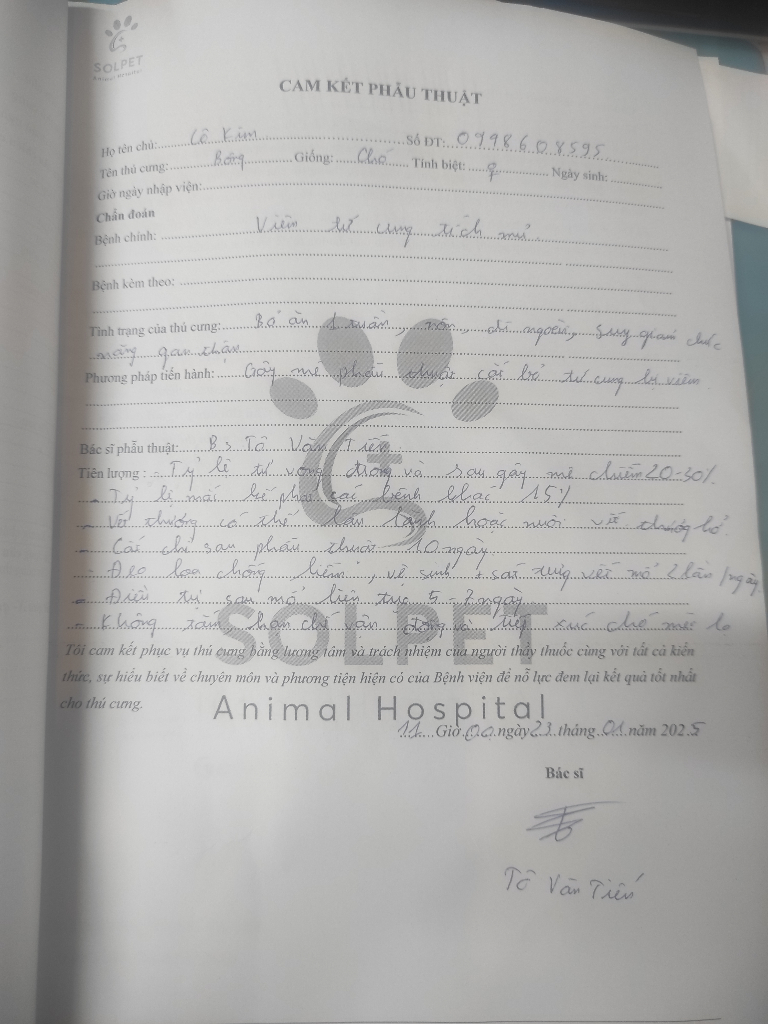 SOLPET
Animal Hospital
CAM KẾT PHẪU THUẬT
Họ tên chủ: Cô Kim Số ĐT: 0998608595
Tên thú cưng: Bông Giống: Chó Tính biệt: ♀ Ngày sinh:
Giờ ngày nhập viện:
Chẩn đoán
Bệnh chính: Viêm tử cung tích mủ
Bệnh kèm theo:
Tình trạng của thú cưng: Bỏ ăn 1 tuần, nôn, đi ngoài, suy giảm chức
năng gan thận
Phương pháp tiến hành: Gây mê phẫu thuật cắt bỏ tử cung bị viêm
Bác sĩ phẫu thuật: Bs Tô Văn Tiến
Tiên lượng : - Tỷ lệ tử vong trong và sau gây mê chiếm 20-30%
- Tỷ lệ mắc kế phát các bệnh khác 15%
- Vết thương có thể lâu lành hoặc nuôi vết thương hở
- Cắt chỉ sau phẫu thuật 10 ngày
- Đeo loa chống liếm, vệ sinh + sát trùng vết mổ 2 lần/ngày
- Điều trị sau mổ liên tục 5-7 ngày
- Không tắm, hạn chế vận động và tiếp xúc chó mèo lạ
Tôi cam kết phục vụ thú cưng bằng lương tâm và trách nhiệm của người thầy thuốc cùng với tất cả kiến
thức, sự hiểu biết về chuyên môn và phương tiện hiện có của Bệnh viện để nỗ lực đem lại kết quả tốt nhất
cho thú cưng.
SOLPET
Animal Hospital
11 Giờ 00 ngày 23 tháng 01 năm 2025
Bác sĩ
Tô Văn Tiến